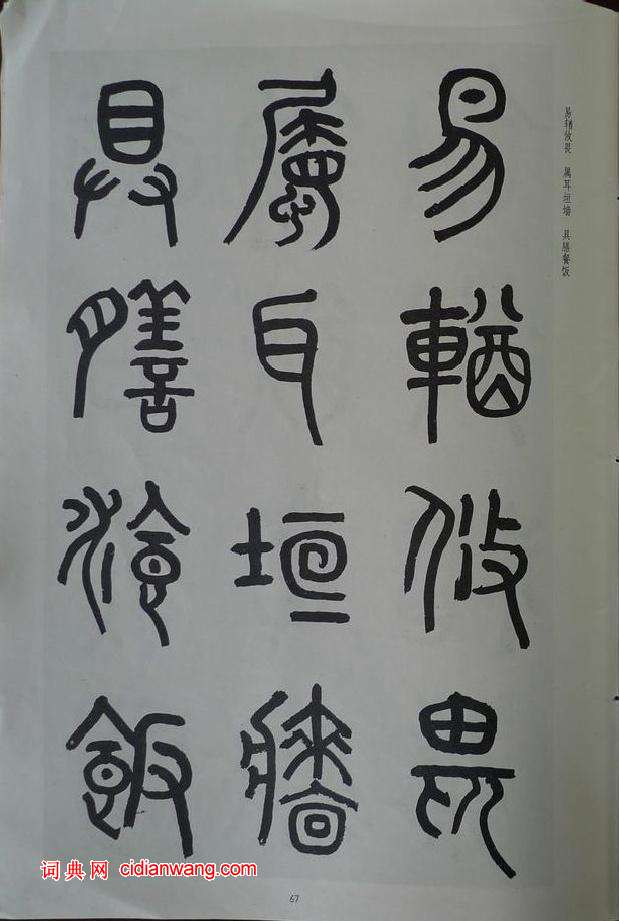 易輶攸畏 属耳垣墙 具膳餐饭
易輶攸畏
屬耳垣牆
具膳湌飯
词典网 cidianwang.com
67